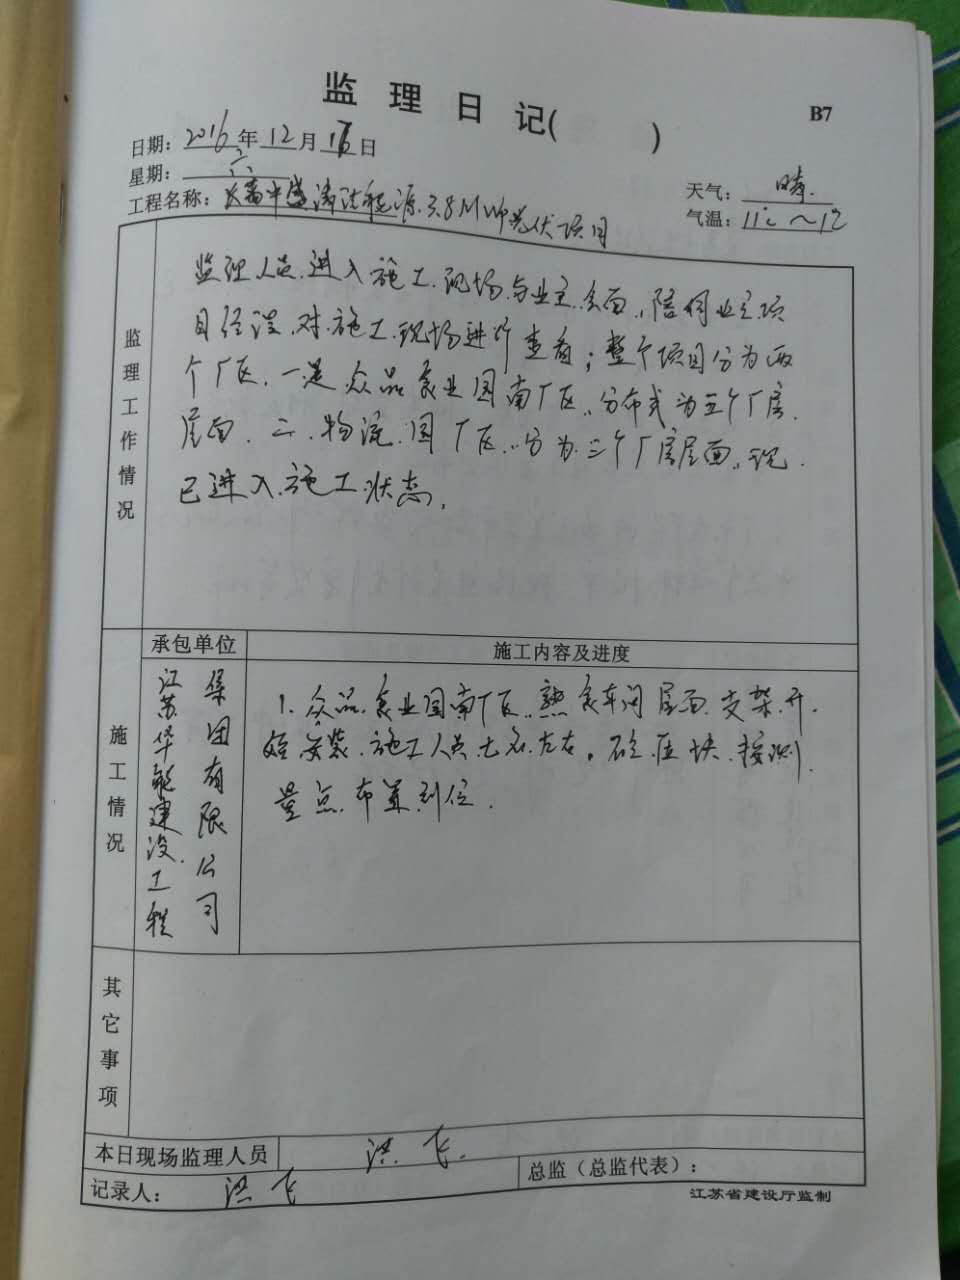 监理日记(　　)
B7
日期：2016年12月 日
星期：六
天气：晴.
工程名称：长葛中盛清洁能源3.8MW光伏项目
气温：11℃～12
监理工作情况
监理人员进入施工现场与业主会面，陪同业主项
目经理对施工现场进行查看；整个项目分为两
个厂区，一是众品食业园南厂区，分布式为五个厂房
屋面，二、物流园厂区，分为三个厂房屋面，现
已进入施工状态，
施工情况
承包单位
施工内容及进度
江苏华能建设工程
集团有限公司
1、众品食业园南厂区，熟食车间屋面支架开
始安装，施工人员七名左右。砼压块按测
量点布置到位.
其它事项
本日现场监理人员
洪飞.
记录人：
洪飞
总监（总监代表）：
江苏省建设厅监制